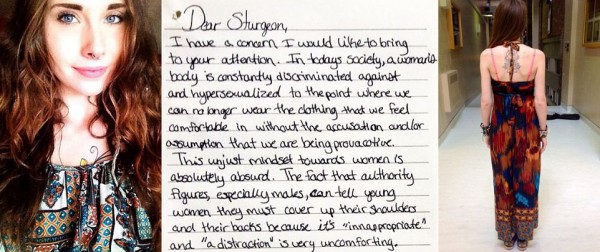 Dear Sturgeon,
I have a concern I would like to bring
to your attention. In todays society, a woman's
body is constantly discriminated against
and hypersexualized to the point where we
can no longer wear the clothing that we feel
comfortable in without the accusation and/or
assumption that we are being provocative.
This unjust mindset towards women is
absolutely absurd. The fact that authority
figures, especially males, can tell young
women they must cover up their shoulders
and their backs because it's "innappropriate"
and "a distraction" is very uncomforting.